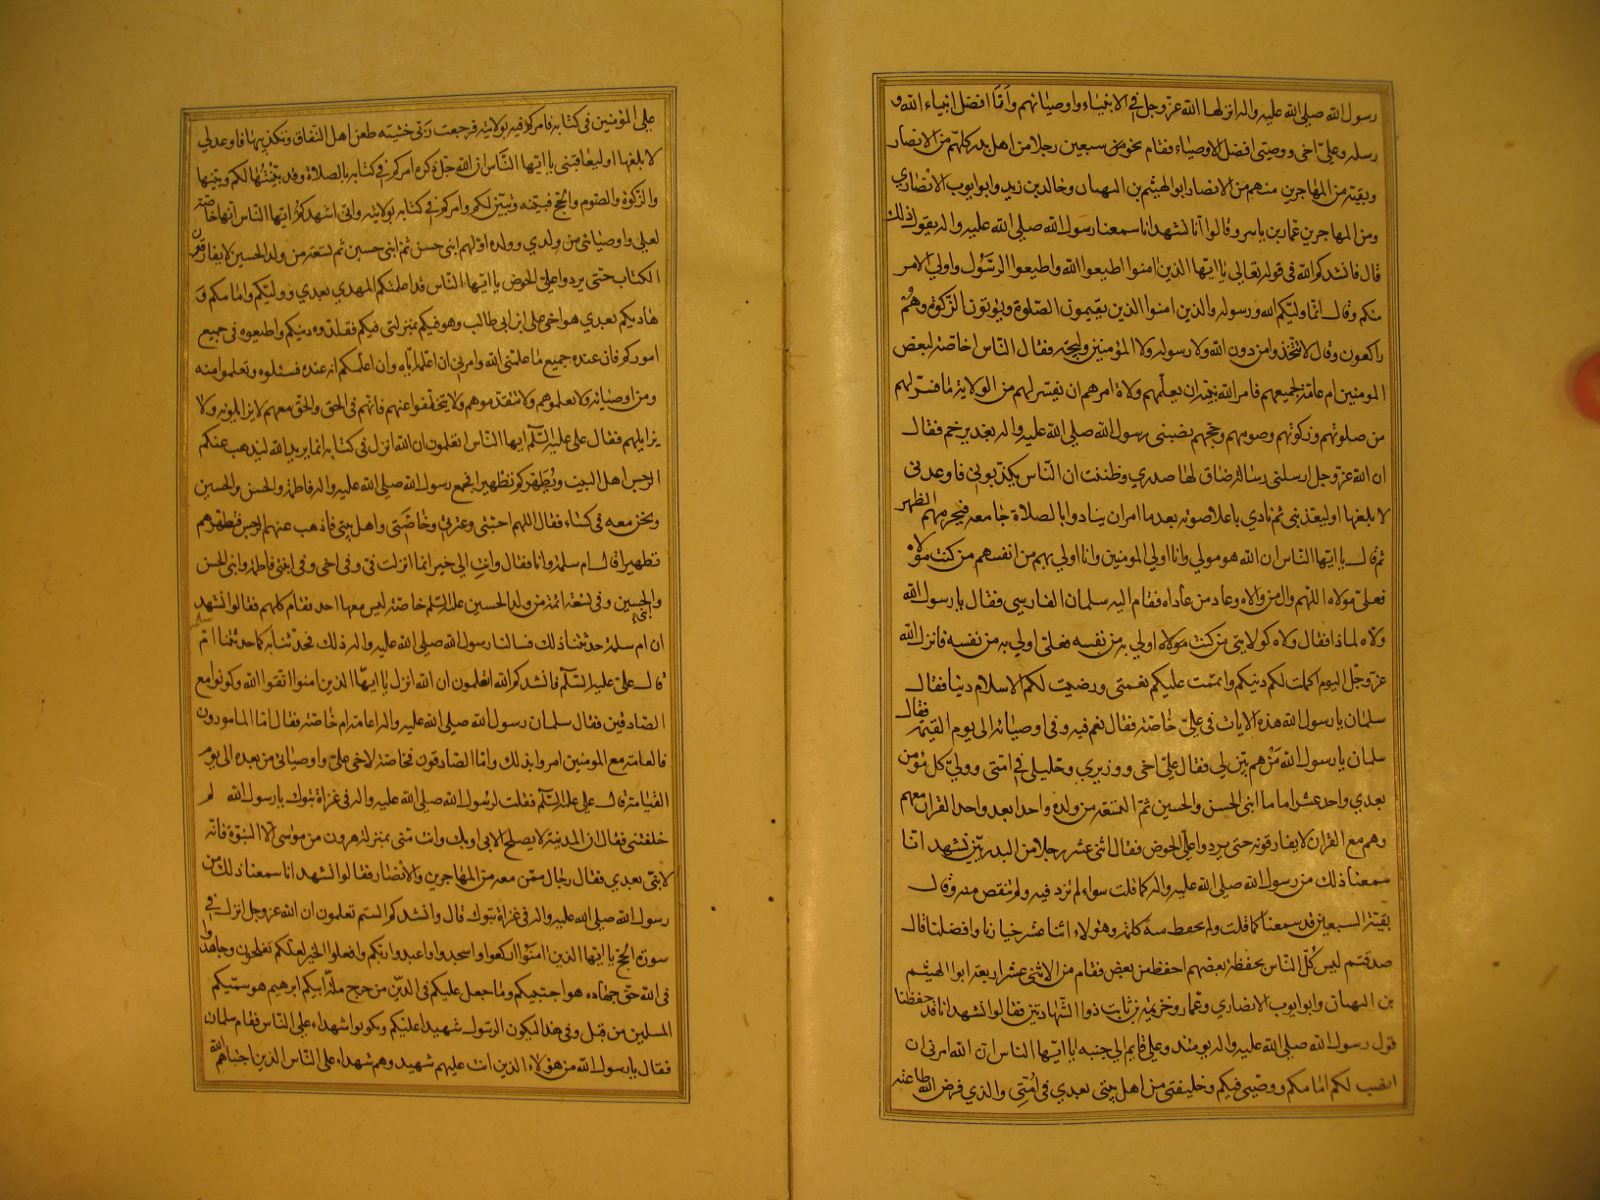 رسول الله صلى الله عليه واله انزلها الله عز وجل في الانبياء واوصيائهم وانا افضل انبياء الله و
رسله وعلي اخى ووصيتى افضل الاوصياء فقام نحو من سبعين رجلا من اهل بدر كلهم من الانصار
وبقيته من المهاجرين منهم من الانصار ابو الهيثم بن التيهان وخالد بن زيد وابو ايوب الانصاري
ومن المهاجرين عمار بن ياسر وقالوا انا نشهد انا سمعنا رسول الله صلى الله عليه واله يقول ذلك
قال فانشدكم الله في قوله تعالى يا ايها الذين امنوا اطيعوا الله واطيعوا الرسول واولي الامر
منكم وقال انما وليكم الله ورسوله والذين امنوا الذين يقيمون الصلوة ويوتون الزكوة وهم
راكعون وقال لا تتخذوا من دون الله ولا رسوله ولا المؤمنين وليجة فقال الناس اخاصة لبعض
المومنين ام عامة لجميعهم فامر الله نبيه ان يعلمهم ولاة امرهم ان يفسر لهم من الولاية ما فسر لهم
من صلوتهم وزكوتهم وصومهم وحجهم بضبنى رسول الله صلى الله عليه واله بغدير خم فقال
ان الله عز وجل ارسلنى رسالة ضاق لها صدري وظننت ان الناس يكذبونى فاوعدنى
لابلغها او ليعذبنى ثم نادي باعلا صوته بعد ما امر ان ينادوا بالصلاة جامعه فيجر بهم الظهر
ثم قال يا ايها الناس ان الله هو مولي وانا اولي المومنين وانا اولي بهم من انفسهم من كنت مولاه
فعلي مولاه اللهم وال من والاه وعاد من عاداه فقام اليه سلمان الفارسى فقال يا رسول الله
ولاه لماذا فقال ولاه كولايتى من كنت مولاه اولي به من نفسه فعلي اولي به من نفسه فانزل الله
عز وجل اليوم اكملت لكم دينكم واتممت عليكم نعمتى ورضيت لكم الاسلام دينا فقال
سلمان يا رسول الله هذه الايات في علي خاصة فقال نعم فيه وفى اوصيائه الى يوم القيمة فقال
سلمان يا رسول الله من هم بين لي فقال علي اخى ووزيري وخليلى في امتى وولي كل مؤمن
بعدي واحد عشر اماما ابنى الحسن والحسين ثم التسعة من ولده واحدا بعد واحد القران معهم
وهم مع القران لا يفارقونه حتى يردوا علي الحوض فقال اثنى عشر رجلا من البدريين نشهد انا
سمعنا ذلك من رسول الله صلى الله عليه واله كما قلت سواء لم تزد فيه ولم تنقص منه وقال
بقية السبعين قد سمعنا كما قلت ولم نحفظ سه كلمة وهؤلاء اثنا عشر خيارنا وافضلنا قال
صدقتم ليس كل الناس يحفظه بعضهم احفظ من بعض فقام من الاثنى عشر اربعة ابو الهيثم
بن التيهان وابو ايوب الانصاري وعمار وخزيمة بن ثابت ذوا الشهادتين فقالوا نشهد انا قد حفظنا
قول رسول الله صلى الله عليه واله يومئذ وعلي قايم الي جنبه يا ايها الناس ان الله امرنى ان
انصب لكم امامكم ووصيى فيكم وخليفتى من اهل بيتى بعدي فى امتى والذي فرض الله طاعته
على المؤمنين فى كتابه فامركم فيه بولايته فرجعت ربى خشية طعن اهل النفاق وتكذيبها فاوعدنى
لابلغها او ليعاقبنى يا ايها الناس ان الله جل ذكره امركم فى كتابه بالصلاة وقد بينتها لكم وبينها
والزكوة والصوم والحج فبينته وتبين لكم وامركم فى كتابه بولايته وانى اشهدكم ايها الناس انها خاصة
لعلي واوصيائى من ولدي وولده اولهم ابنى حسن ثم ابنى حسين ثم تسعة من ولد الحسين لا يفارقون
الكتاب حتى يردوا علي الحوض يا ايها الناس قد اعلمتكم المهدي بعدي ووليكم وامامكم و
هاديكم بعدي هو اخى علي ابن ابى طالب وهو فيكم بمنزلتى فيكم فقلدوه دينكم واطيعوه فى جميع
اموركم فان عنده جميع ما علمنى الله وامرنى ان اعلمه اياه وان اعلمكم انه عنده فسئلوه وتعلموا منه
ومن اوصيائه ولا تعلموهم ولا تتقدموهم ولا يتخلفوا عنهم فانهم فى الحق والحق معهم لا يزايلونه ولا
يزايلهم فقال علي عليه السلم ايها الناس اتعلمون ان الله انزل فى كتابه انما يريد الله ليذهب عنكم
الرجس اهل البيت ويطهركم تطهيرا فجمع رسول الله صلى الله عليه واله فاطمة والحسن والحسين
ونحن معه فى كساء فقال اللهم احبتى وعترتى وخاصتى واهل بيتى فاذهب عنهم الرجس فطهرهم
تطهيرا فقالت ام سلمة وانا فقال وانت الي خير انما انزلت فى وفى اخى وفى ابنتى فاطمة وابنى الحسن
والحسين وفى تسعة ائمة من ولد الحسين عليه السلم خاصة ليس معها احد فقام كلهم فقالوا نشهد
ان ام سلمة حدثتنا ذلك فسالنا رسول الله صلى الله عليه واله ذلك فحدثنا به كما حدثتنا ام
قال علي عليه السلم فانشدكم الله اتعلمون ان الله انزل يا ايها الذين امنوا اتقوا الله وكونوا مع
الصادقين فقال سلمان رسول الله صلى الله عليه واله اعامة ام خاصة فقال اما المامورون
فالعامة مع المومنين امروا بذلك واما الصادقون فخاصة لاخى علي واوصيائى من بعده الى يوم
القيامة قال علي عليه السلم فقلت لرسول الله صلى الله عليه واله فى غزاة تبوك يا رسول الله لم
خلفتنى فقال ان المدينة لا يصلح الا بى او بك وانت منى بمنزلة هرون من موسى الا النبوة فانه
لا نبى بعدي فقال رجال ممن معه من المهاجرين والانصار فقالوا نشهد انا سمعنا ذلك من
رسول الله صلى الله عليه واله فى غزاة تبوك قال وانشدكم الستم تعلمون ان الله عز وجل انزل في
سورة الحج يا ايها الذين امنوا اركعوا واسجدوا واعبدوا ربكم وافعلوا الخير لعلكم تفلحون وجاهدوا
فى الله حق جهاده هو اجتبيكم وما جعل عليكم فى الدين من حرج ملة ابيكم ابرهيم هو سميكم
المسلمين من قبل وفى هذا ليكون الرسول شهيدا عليكم وتكونوا شهداء على الناس فقام سلمان
فقال يا رسول الله من هؤلاء الذين انت عليهم شهيد وهم شهداء على الناس الذين اجتباهم الله